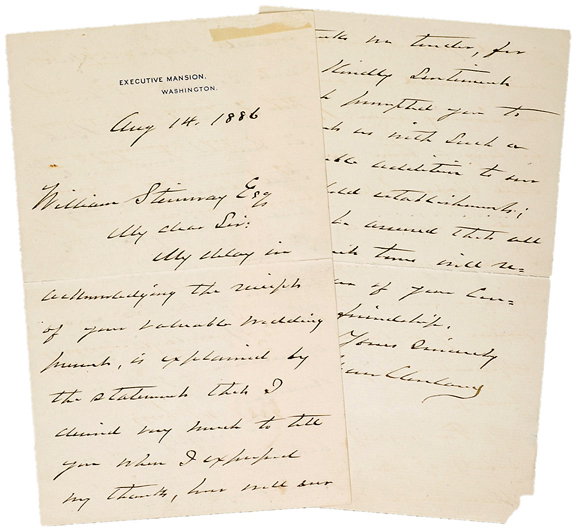 EXECUTIVE MANSION.
WASHINGTON.
Aug 14. 1886
William Steinway Esq
My dear Sir:
My delay in
acknowledging the receipt
of your valuable wedding
present, is explained by
the statement that I
desired very much to tell
you when I expressed
my thanks, how well our
we tender, for
Kindly Sentiments
prompted you to
us with such a
addition to our
establishment;
be assured that all
tones will re-
of your
friendship.
Yours Sincerely
Cleveland